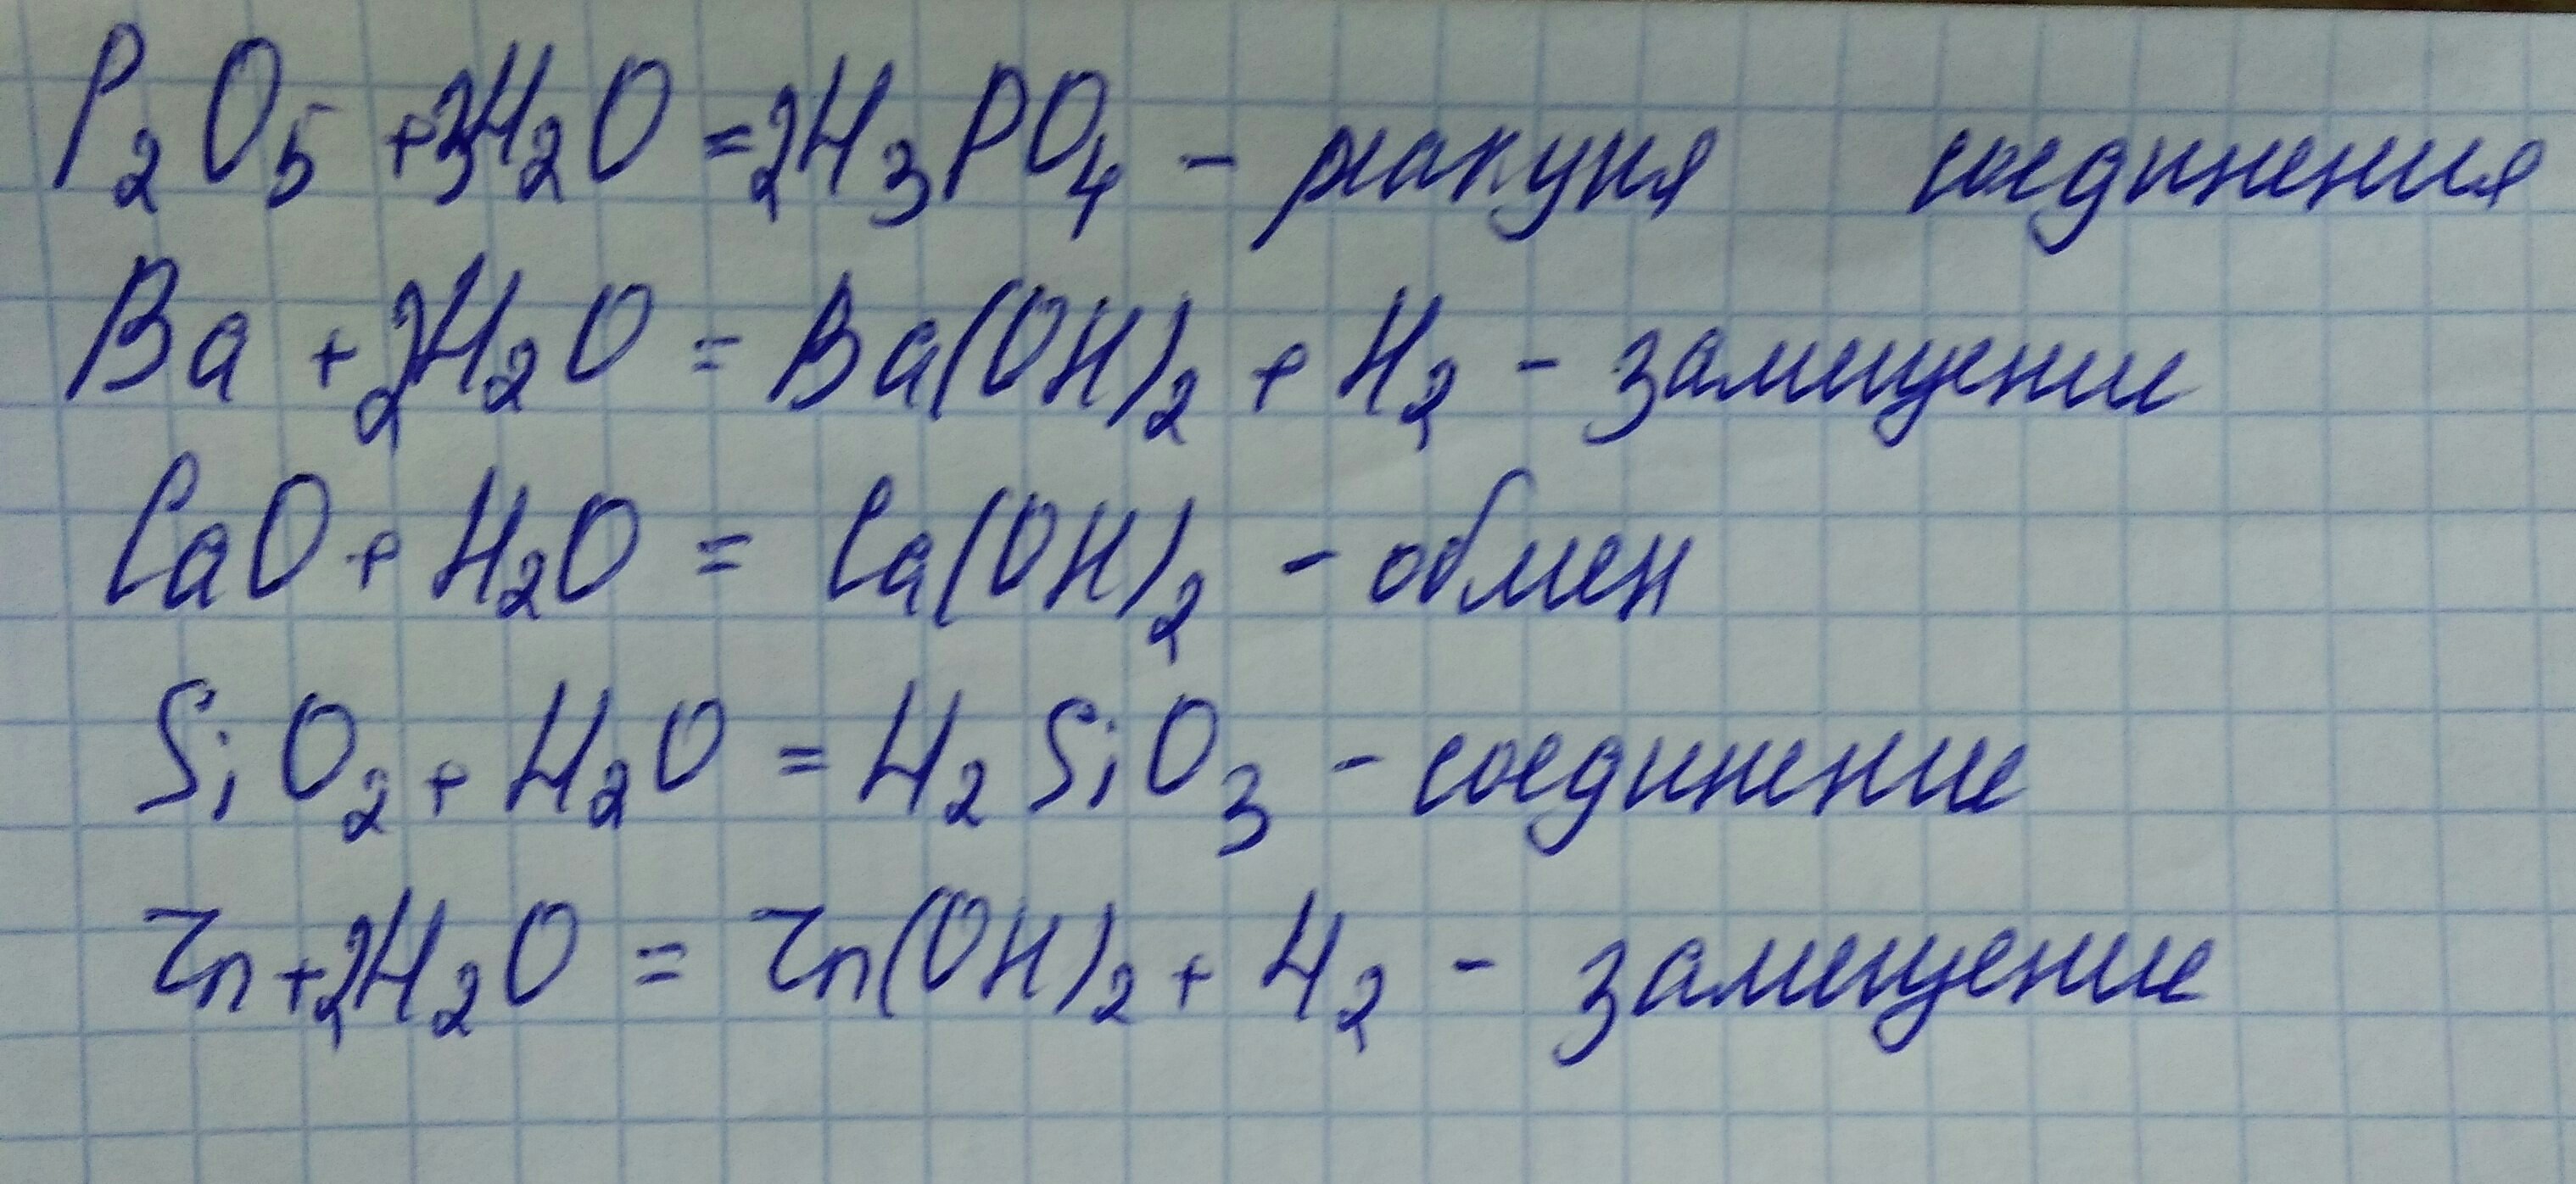 P₂O₅ + 3H₂O = 2H₃PO₄ - реакция соединения
Ba + 2H₂O = Ba(OH)₂ + H₂ - замещение
CaO + H₂O = Ca(OH)₂ - обмен
SiO₂ + H₂O = H₂SiO₃ - соединение
Zn + 2H₂O = Zn(OH)₂ + H₂ - замещение